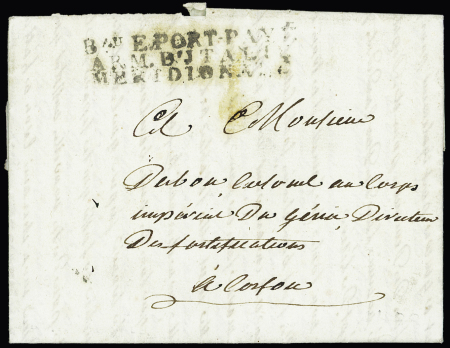 Bau E. PORT-PAYÉ
ARM. D'ITALIE
MERIDIONALE
A Monsieur
Dubou Colonel au Corps
impérial Du génie, Directeur
Des fortifications
à Corfou